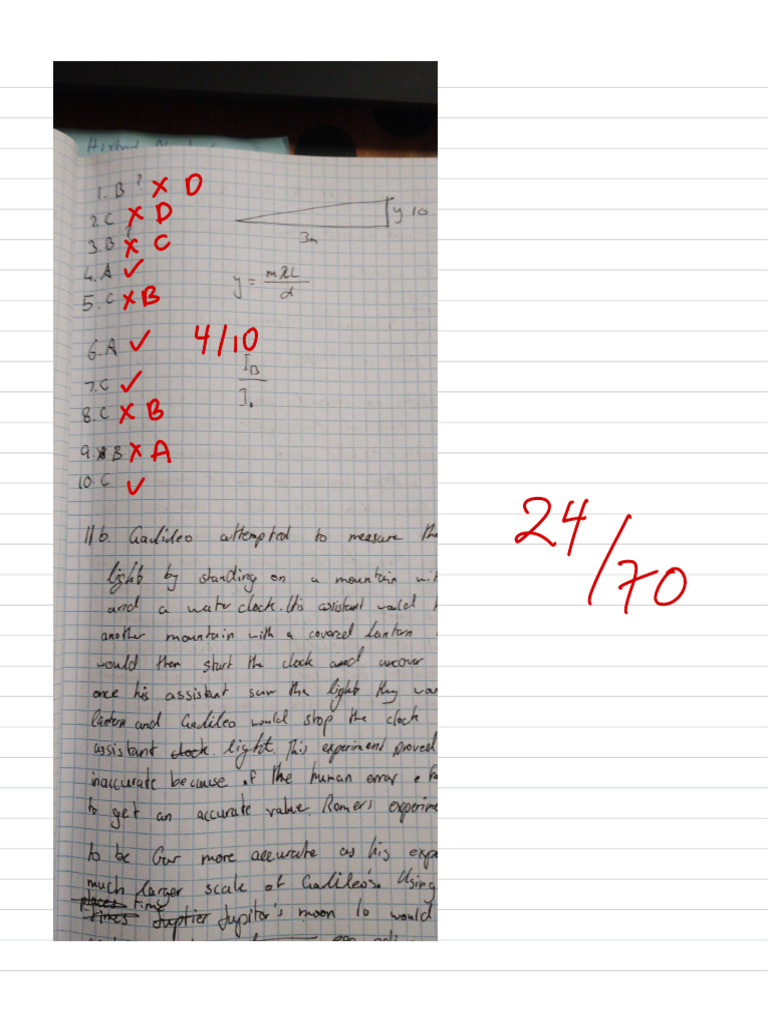 1. B ? × D
2. C × D
3. B × C
4. A ✓
5. C × B
6. A ✓
7. C ✓
8. C × B
9. B × A
10. C ✓
y 10
3m
y = mλL / d
4/10
I_B / I.
24/70
11 b. Galileo attempted to measure the
light by standing on a mountain wit
and a water clock. His assistant would
another mountain with a covered lantern
would then start the clock and uncover
once his assistant saw the light they wou
lantern and Galileo would stop the clock
assistant clock light. This experiment proved
inaccurate because of the human error
to get an accurate value. Romers experime
to be far more accurate as his expe
much larger scale of Galileo's. Using
places time
times Juptier Jupitor's moon Io would